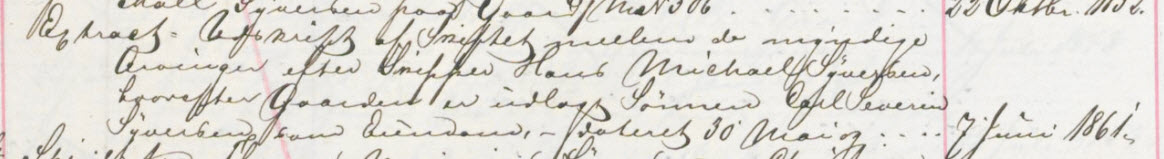 Syversen paa Gaard MNo 306 . . . . . . . . 22 Oktbr.
Extract-Udskrift af Skiftet mellem de myndige
Arvinger efter Skipper Hans Michael Syversen,
hvorefter Gaarden er udlagt Sønnen Carl Severin
Syversen som Eiendom, - dateret 30 Mai . . . . 7 Juni 1861.